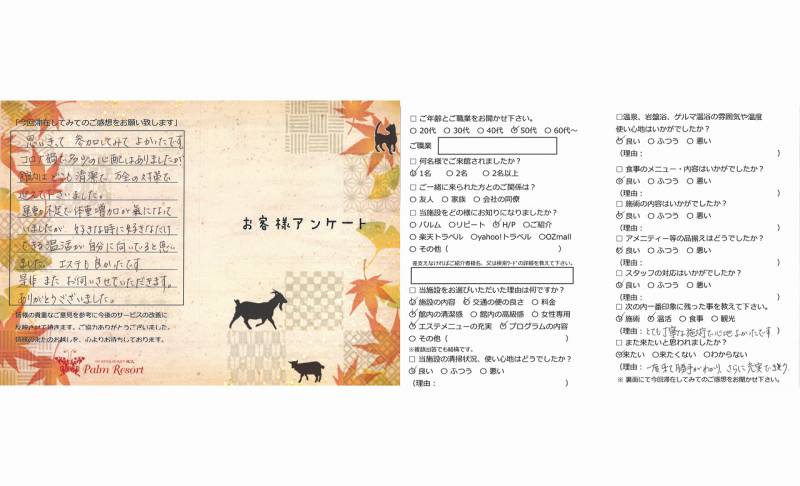 「今回滞在してみてのご感想をお願い致します」
思いきって 参加してみて よかったです
コロナ禍で多少の心配はありましたが
館内はどこも清潔で 万全の対策で
迎えて下さいました。
運動不足で体重増加が気になって
いましたが 好きな時に好きなだけ
できる温活が自分に向いていると思い
ました。エステも良かったです
是非 また お伺いさせていただきます。
ありがとうございました。
皆様の貴重なご意見を参考に今後のサービスの改善に
反映させて頂きます。ご協力ありがとうございました。
皆様の来たのお越しを、心よりお待ちしております。
Palm Resort
お客様アンケート
□ ご年齢とご職業をお聞かせ下さい。
○ 20代 ○ 30代 ○ 40代 ○ 50代 ○ 60代～
ご職業
□ 何名様でご来館されましたか？
○ 1名 ○ 2名 ○ 2名以上
□ ご一緒に来られた方とのご関係は？
○ 友人 ○ 家族 ○ 会社の同僚
□ 当施設をどの様にお知りになりましたか？
○ パルム ○リピート ○ H/P ○ご紹介
○ 楽天トラベル ○yahoo!トラベル ○OZmall
○ その他（
差支えなければご紹介者様名、又は検索ワードの詳細を教えて下さい。
□ 当施設をお選びいただいた理由は何ですか？
○ 施設の内容 ○ 交通の便の良さ ○ 料金
○ 館内の清潔感 ○ 館内の高級感 ○ 女性専用
○ エステメニューの充実 ○ プログラムの内容
○ その他（ ）
※複数回答でも結構です。
□ 当施設の清掃状況、使い心地はどうでしたか？
○ 良い ○ ふつう ○ 悪い
（理由： ）
□温泉、岩盤浴、ゲルマ温浴の雰囲気や温度
使い心地はいかがでしたか？
○ 良い ○ ふつう ○ 悪い
（理由： ）
□ 食事のメニュー・内容はいかがでしたか？
○ 良い ○ ふつう ○ 悪い
（理由：
□ 施術の内容はいかがでしたか？
○ 良い ○ ふつう ○ 悪い
（理由： ）
□ アメニティー等の品揃えはどうでしたか？
○ 良い ○ ふつう ○ 悪い
（理由： ）
□ スタッフの対応はいかがでしたか？
○ 良い ○ ふつう ○ 悪い
（理由： ）
□ 次の内一番印象に残った事を教えて下さい。
○ 施術 ○ 温活 ○ 食事 ○ 観光
（理由：とても丁寧な施術で心地よかったです ）
□ また来たいと思われましたか？
○来たい ○ 来たくない ○わからない
（理由：一度来て勝手がわかり、さらに充実で
※ 裏面にて今回滞在してみてのご感想をお聞かせ下さい。